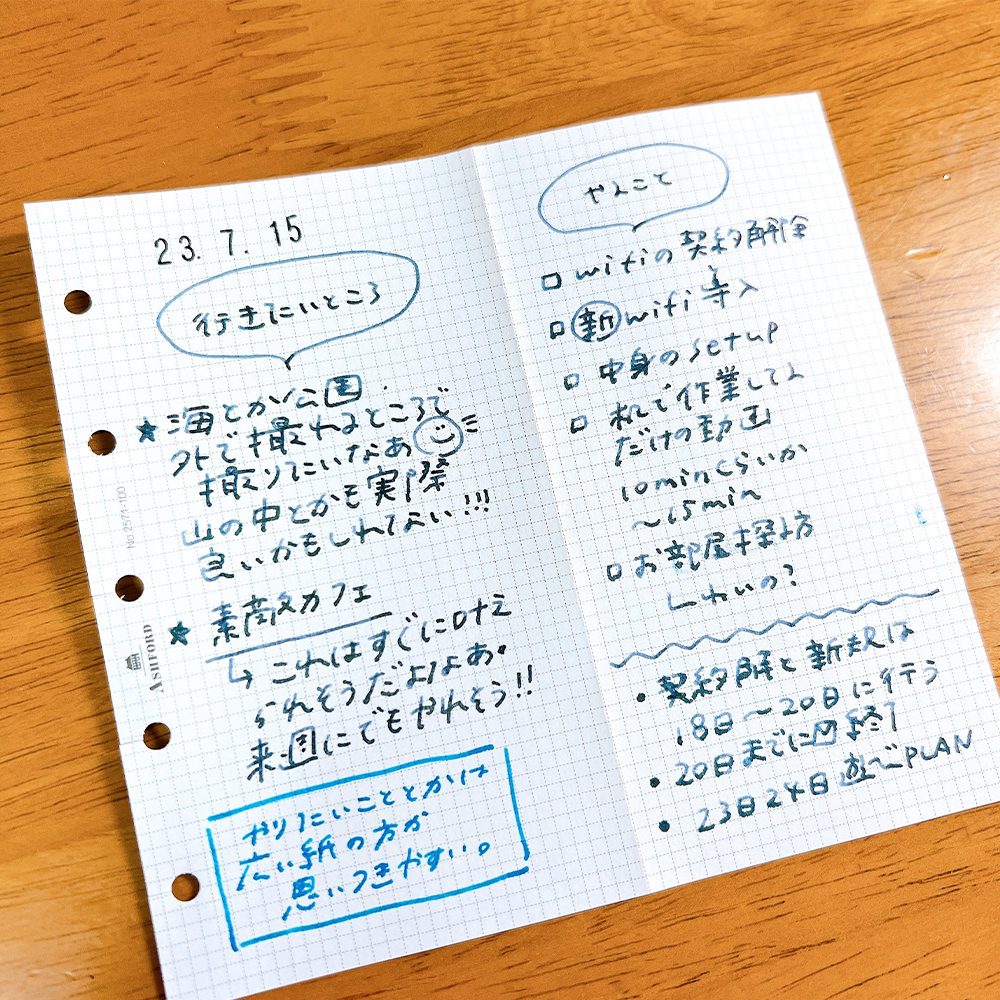 23. 7. 15
行きたいところ
★海とか公園
外で撮れるところで
撮りたいなあ
山の中とかも実際
良いかもしれてない!!!
★素敵カフェ
↳これはすぐに
られそうだよなあ。
来週にでもやれそう!!
やりたいこととかは
広い紙の方が
思いつきやすい。
No.2571-100
ASHFORD
やること
□wifiの契約解除
□新wifi導入
□中身のsetup
□机で作業してる
だけの動画
10minくらいか
〜15min
□お部屋探し方
しないの?
・契約解と新規は
18日〜20日に行う
・20日までに終了
・23日24日遊ぶPLAN